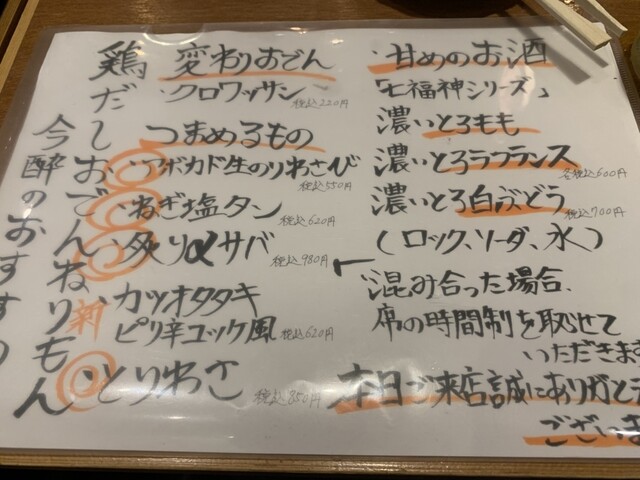 鶏だしおでんねりもん
今酔のおすすめ
変わりおでん
・クロワッサン 税込220円
つまめるもの
・アボカド生のりわさび
税込550円
・ねぎ塩タン 税込620円
・炙りαサバ 税込980円
新 カツオタタキ
ピリ辛ユッケ風 税込620円
・とりわさ 税込850円
・甘めのお酒
「七福神シリーズ」
濃いとろもも
濃いとろラフランス
各税込600円
濃いとろ白ぶどう
税込700円
(ロック、ソーダ、水)
混み合った場合、
席の時間制を取らせて
いただきます
本日ご来店誠にありがとう
ございま